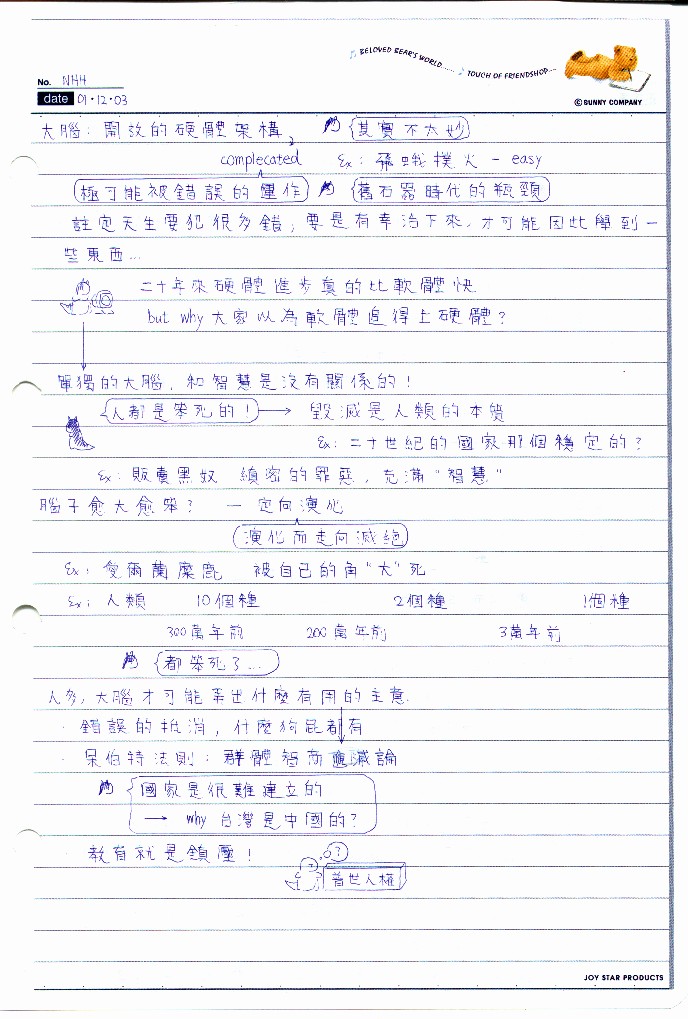 BELOVED BEAR'S WORLD..... TOUCH OF FRIENDSHOP...
No. NHH
© BUNNY COMPANY
date 01.12.03
大腦：開放的硬體架構, 其實不太妙
complecated Ex：飛蛾撲火 - easy
極可能被錯誤的運作 舊石器時代的瓶頸
註定天生要犯很多錯，要是有幸活下來，才可能因此學到一
些東西...
二十年來硬體進步真的比軟體快
but why 大家以為軟體追得上硬體？
單獨的大腦，和智慧是沒有關係的！
人都是笨死的！ → 毀滅是人類的本質
Ex：二十世紀的國家那個穩定的？
Ex：販賣黑奴 縝密的罪惡，充滿"智慧"
腦子愈大愈笨？ 一定向演化
演化而走向滅絕
Ex：愛爾蘭麋鹿 被自己的角"大"死
Ex：人類 10個種 2個種 1個種
300萬年前 200萬年前 3萬年前
都笨死了...
人多，大腦才可能弄出什麼有用的主意.
· 錯誤的抵消，什麼狗屁都有
· 呆伯特法則：群體智商遞減論
國家是很難建立的
→ why 台灣是中國的？
教育就是鎮壓！
?
普世人權
JOY STAR PRODUCTS